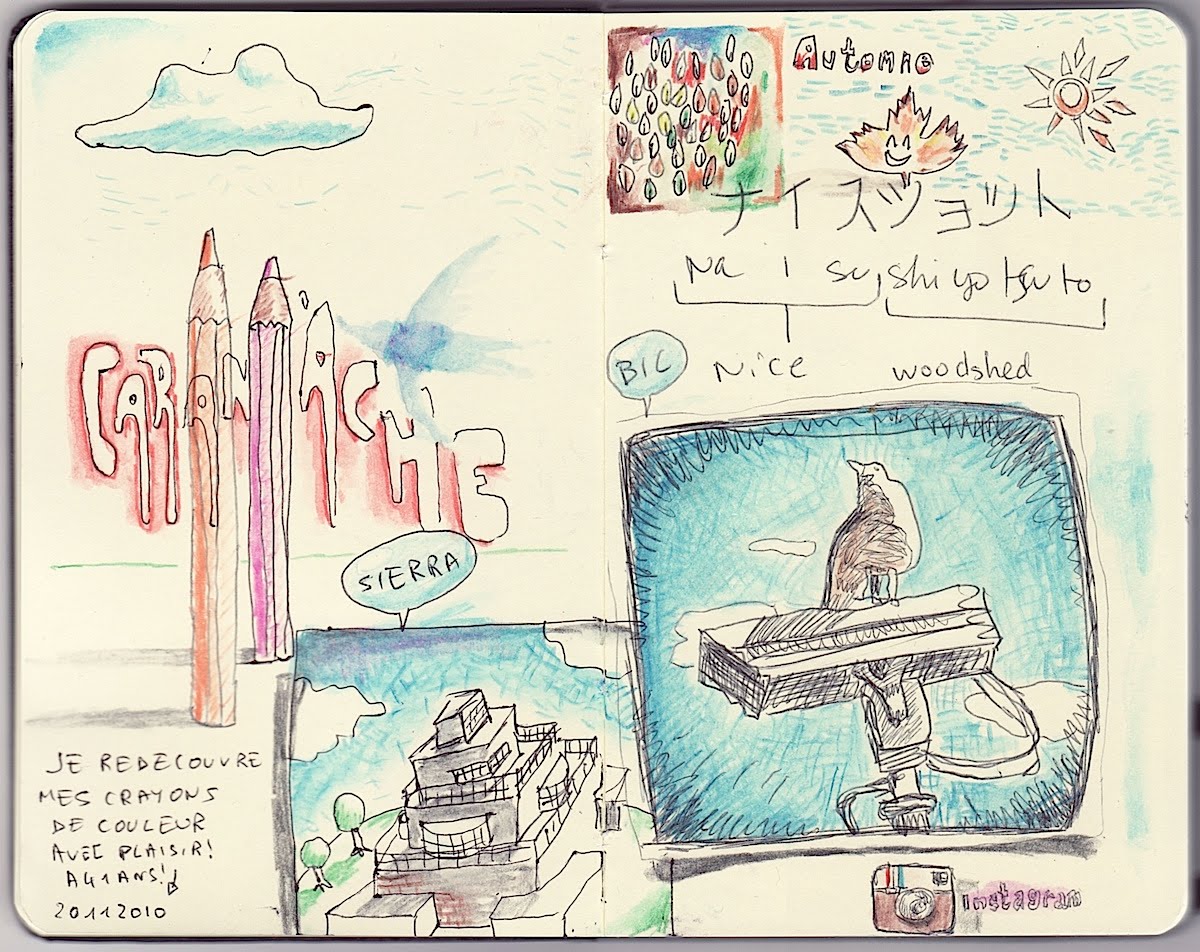 CARAN D'ACHE
SIERRA
JE REDECOUVRE
MES CRAYONS
DE COULEUR
AVEC PLAISIR!
A 41 ANS!
20112010
Automne
ナイスショット
Na i su shi yo tsu to
BIC
Nice woodshed
Instagram